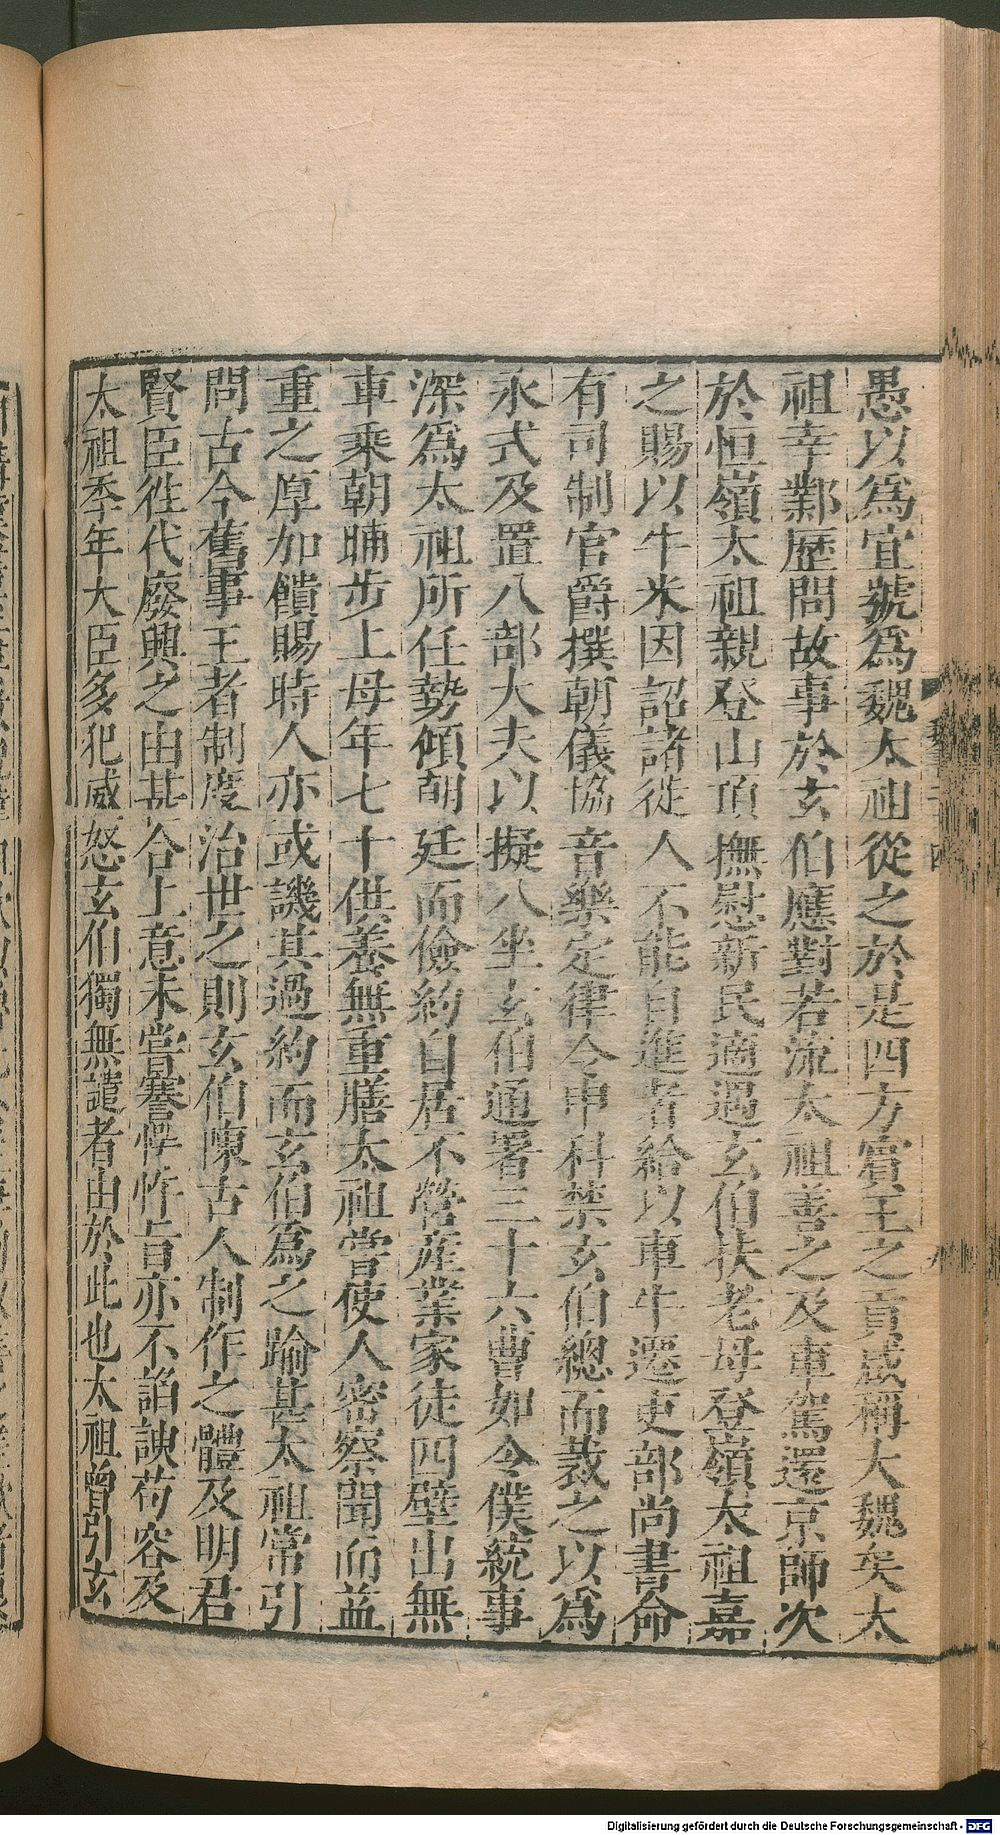 愚以爲宜號爲魏太祖從之於是四方賓王之貢咸稱大魏矣太
祖幸鄴歴問故事於玄伯應對若流太祖善之及車駕還京師次
於恒嶺太祖親登山頂撫慰新民適遇玄伯扶老母登嶺太祖嘉
之賜以牛米因詔諸徙人不能自進者給以車牛遷吏部尚書命
有司制官爵撰朝儀協音樂定律令申科禁玄伯總而裁之以爲
永式及置八部大夫以擬八坐玄伯通署三十六曹如令僕統事
深爲太祖所任勢傾朝廷而儉約自居不營産業家徒四壁出無
車乘朝晡步上母年七十供養無重膳太祖嘗使人密察聞而益
重之厚加饋賜時人亦或譏其過約而玄伯爲之踰甚太祖常引
問古今舊事王者制度治世之則玄伯陳古人制作之體及明君
賢臣徃代廢興之由甚合上意未嘗謇愕忤旨亦不諂諛苟容及
太祖季年大臣多犯威怒玄伯獨無譴者由於此也太祖曾引玄
Digitalisierung gefördert durch die Deutsche Forschungsgemeinschaft - DFG